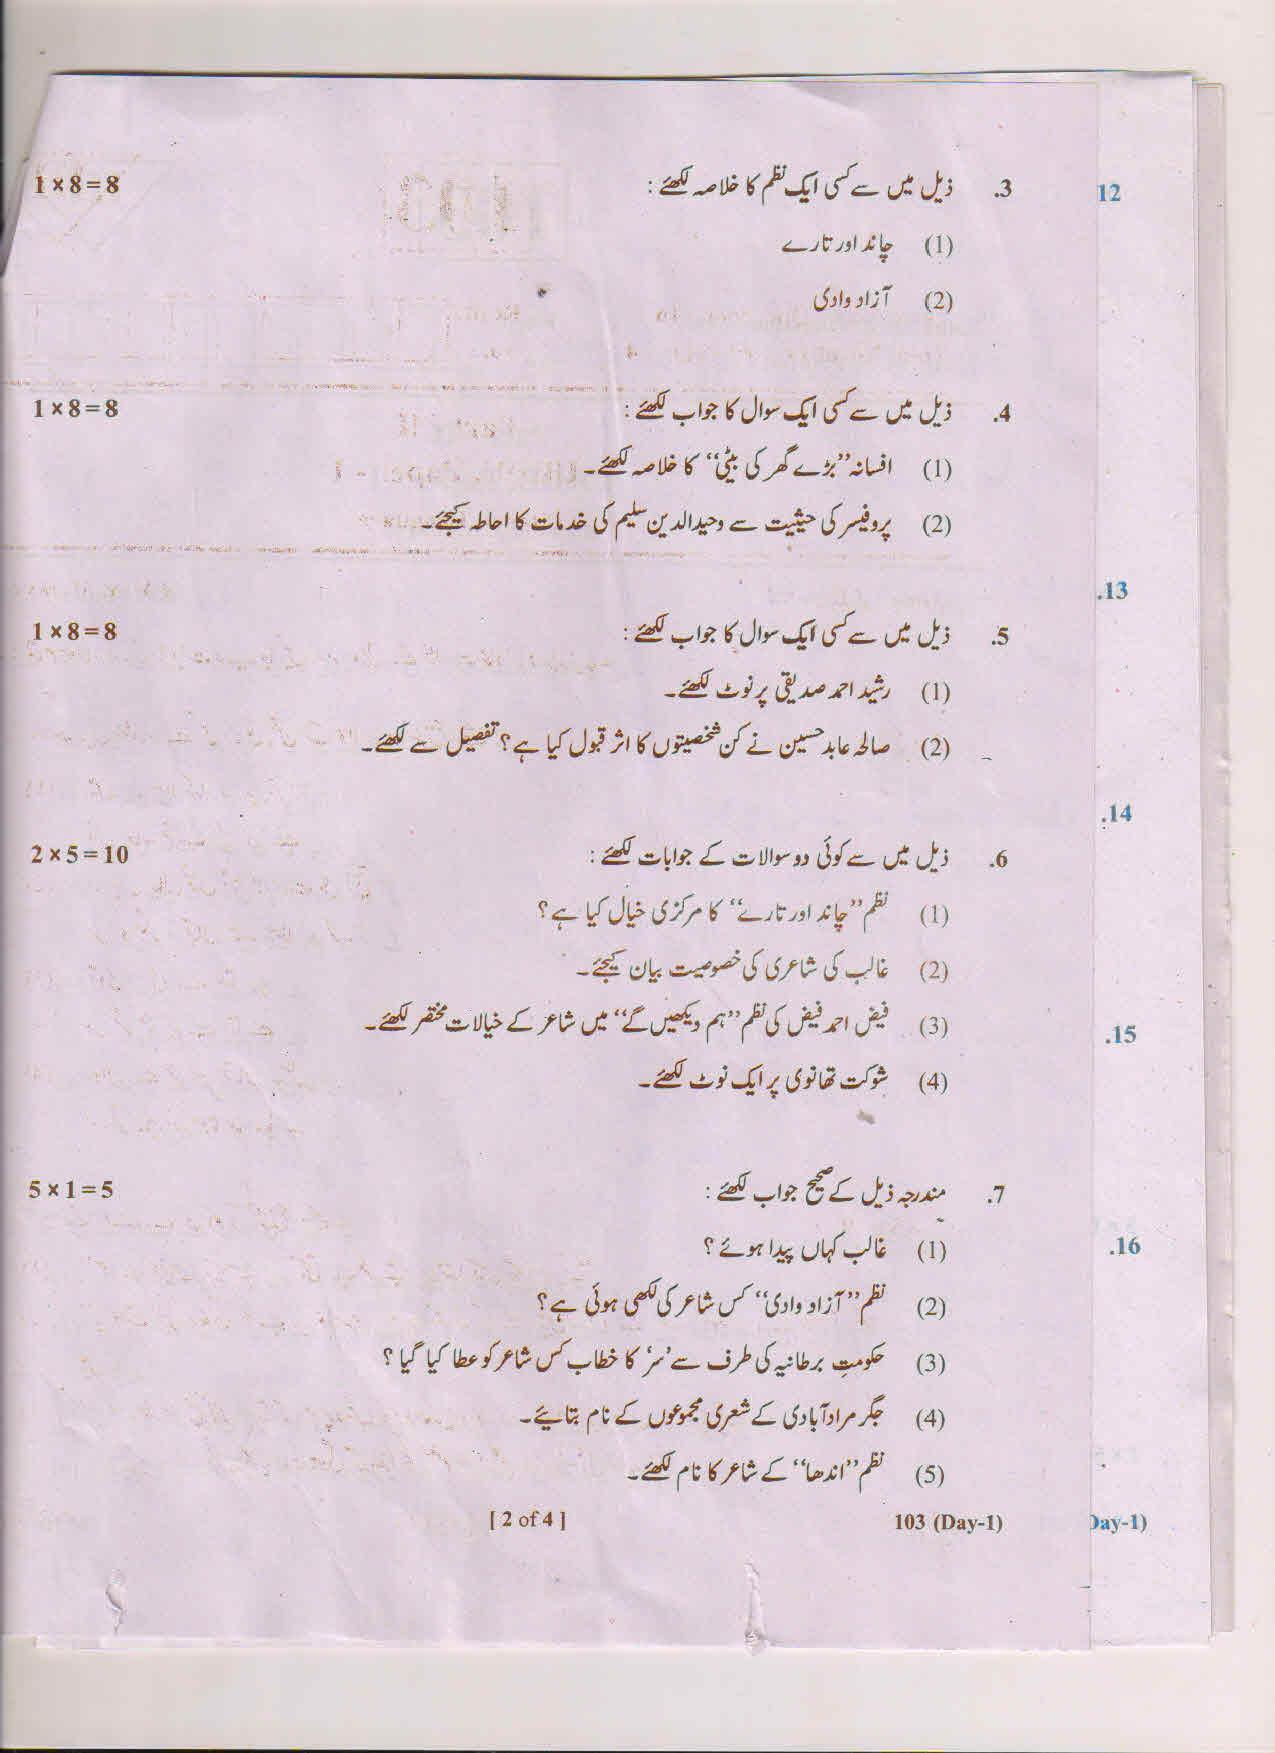 3. ذیل میں سے کسی ایک نظم کا خلاصہ لکھئے : 1 × 8 = 8
(1) چاند اور تارے
(2) آزاد وادی
4. ذیل میں سے کسی ایک سوال کا جواب لکھئے : 1 × 8 = 8
(1) افسانہ ”بڑے گھر کی بیٹی“ کا خلاصہ لکھئے۔
(2) پروفیسر کی حیثیت سے وحیدالدین سلیم کی خدمات کا احاطہ کیجئے۔
5. ذیل میں سے کسی ایک سوال کا جواب لکھئے : 1 × 8 = 8
(1) رشید احمد صدیقی پر نوٹ لکھئے۔
(2) صالحہ عابد حسین نے کن شخصیتوں کا اثر قبول کیا ہے؟ تفصیل سے لکھئے۔
6. ذیل میں سے کوئی دو سوالات کے جوابات لکھئے : 2 × 5 = 10
(1) نظم ”چاند اور تارے“ کا مرکزی خیال کیا ہے؟
(2) غالب کی شاعری کی خصوصیت بیان کیجئے۔
(3) فیض احمد فیض کی نظم ”ہم دیکھیں گے“ میں شاعر کے خیالات مختصر لکھئے۔
(4) شوکت تھانوی پر ایک نوٹ لکھئے۔
7. مندرجہ ذیل کے صحیح جواب لکھئے : 5 × 1 = 5
(1) غالب کہاں پیدا ہوئے ؟
(2) نظم ”آزاد وادی“ کس شاعر کی لکھی ہوئی ہے؟
(3) حکومتِ برطانیہ کی طرف سے ’سر‘ کا خطاب کس شاعر کو عطا کیا گیا ؟
(4) جگر مرادآبادی کے شعری مجموعوں کے نام بتایئے۔
(5) نظم ”اندھا“ کے شاعر کا نام لکھئے۔
103 (Day-1) [ 2 of 4 ]
12
13.
14.
15.
16.
Day-1)